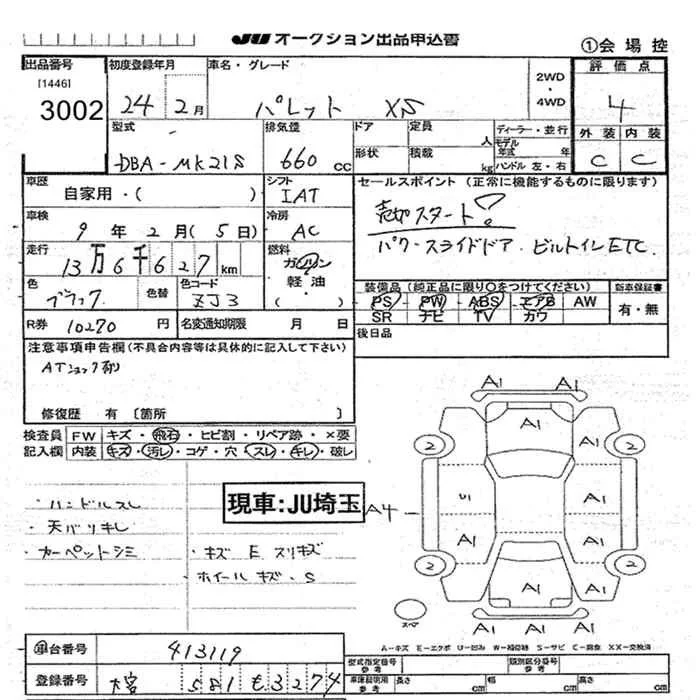 JU オークション出品申込書
①会場控
出品番号 初度登録年月 車名・グレード 評価点
[1446]
3002
24 2月 パレット XS 2WD・4WD 4
型式 排気量 ドア 定員 人 ディーラー・並行 外装 内装
形状 積載 kg モデル年式 年 ハンドル左・右
DBA-MK21S 660 CC C C
車歴 自家用・( ) シフト IAT セールスポイント (正常に機能するものに限ります)
車検 9年 2月 (5日) 冷房 AC 売切スタート!
パワースライドドア・ビルトインETC
走行 13万6千627km 燃料 ガソリン 軽油 ( )
色 ブラック 色替 色コード ZJ3 装備品 (純正品に限り○をつけてください) 新車保証書
PS・PW・ABS・エアB AW 有・無
SR ナビ TV カワ
R券 10270円 名変通知期限 月 日 後日品
注意事項申告欄(不具合内容等は具体的に記入して下さい)
ATショック有
修復歴 有 〔箇所 〕
検査員 FW キズ・飛石・ヒビ割・リペア跡・×要
記入欄 内装 キズ・汚レ・コゲ・穴・スレ・キレ・破レ
・ハンドルスレ
・天バリキレ
・カーペットシミ
現車:JU埼玉
・キズ E スリキズ
ホイールキズ・S
A1 A1
A1
2 A1 A1 2
U1 A1
A4
A1 A1
2 A1 A1 2
A1 A1 A1
スペア
A-キズ E-エクボ U-凹み W-補修跡 S-サビ C-腐食 XX-交換済
車台番号 413119
登録番号 大宮 581 も 3274
型式指定番号 参考 類別区分番号 参考
車庫証明用 参考 長さ cm 幅 cm 高さ cm